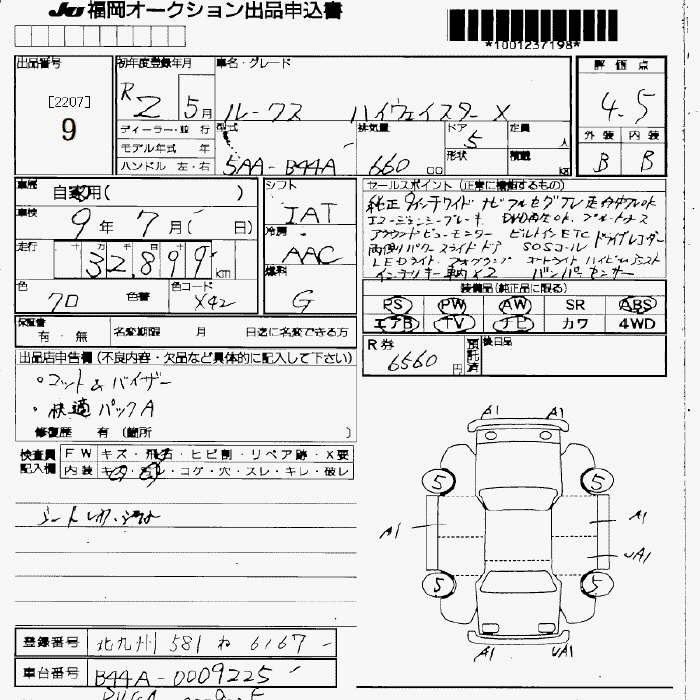 JU 福岡オークション出品申込書
*1001237198*
出品番号
[2207]
9
初年度登録年月
R2 5月
ディーラー・並 行
モデル年式 年
ハンドル 左・右
車名・グレード
ルークス ハイウェイスター X
型式
5AA-B44A
排気量
660 cc
ドア
5
形状
定員
人
積載
kg
評価点
4.5
外装 内装
B B
車歴
自家用( )
車検
9年 7月( 日)
走行
32,899 km
色
クロ
色替
色コード
X42
シフト
IAT
冷房
AAC
燃料
G
セールスポイント (正常に機能するもの)
純正 9インチワイド ナビ フルセグ TV
エマージェンシーブレーキ DVD再生
アラウンドビューモニター ビルトインETC ドライブレコーダー
両側パワースライドドア SOSコール
LEDライト フォグランプ オートライト ハイビームアシスト
インテリキー 車内×2 バンパーセンサー
装備品 (純正品に限る)
PS PW AW SR ABS
エアB TV ナビ カワ 4WD
保証書
有・無
名変期限 月 日迄に名変できる方
R券
6560 円
預託済
後日品
出品店申告欄 (不良内容・欠品など具体的に記入して下さい)
・マット& バイザー
・快適パックA
修復歴 有 (箇所 )
検査員記入欄
FW キズ・飛石・ヒビ割・リペア跡・X要
内装 キズ・コゲ・穴・スレ・キレ・破レ
A1 A1
5 5
A1 A1
UA1
5 5
A1 UA1
登録番号 北九州 581 ね 6167
車台番号 B44A-0009225